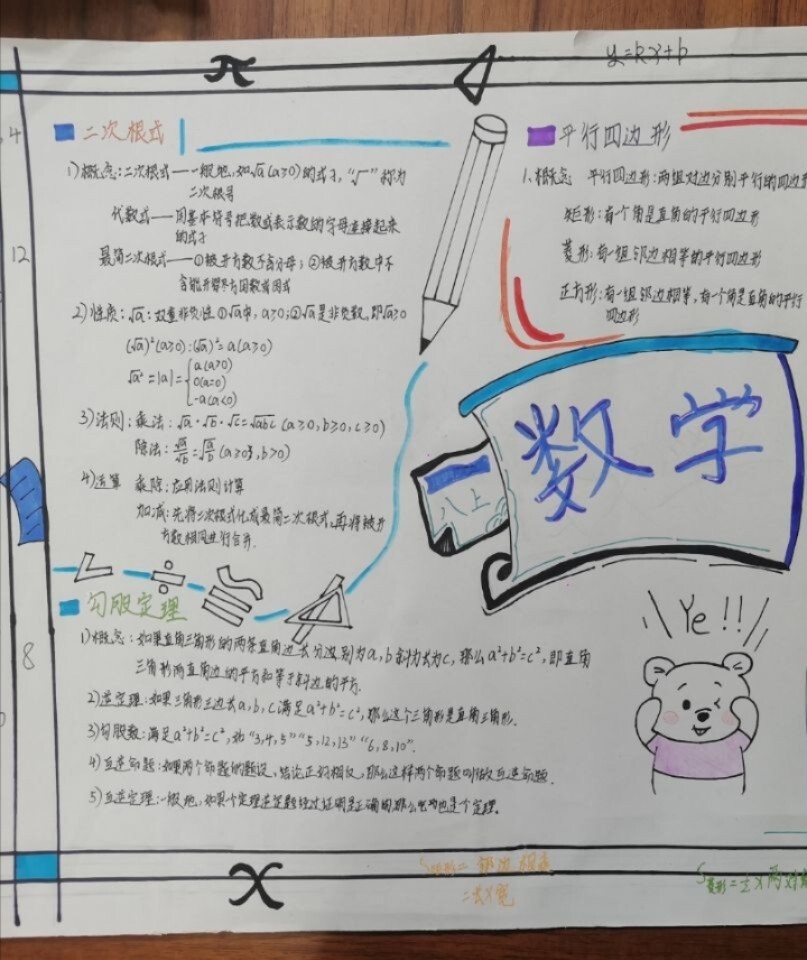 π
y=kx+b
4
12
8
二次根式
1)概念:二次根式——一般地,如√a(a≥0)的式子,“√”称为
二次根号
代数式——用基本符号把数或表示数的字母连接起来
的式子
最简二次根式——①被开方数不含分母;②被开方数中不
含能开得尽方因数或因式
2)性质:√a:双重非负性 ①√a中,a≥0;②√a是非负数,即√a≥0
(√a)²(a≥0):(√a)²=a(a≥0)
√a²=|a|={a(a>0)
0(a=0)
-a(a<0)
3)法则:乘法:√a·√b·√c=√abc(a≥0,b≥0,c≥0)
除法:√a/√b=√a/b(a≥0,b>0)
4)运算 乘除:应用法则计算
加减:先将二次根式化成最简二次根式,再将被开
方数相同进行合并.
平行四边形
1、概念 平行四边形:两组对边分别平行的四边形
矩形:有一个角是直角的平行四边形
菱形:有一组邻边相等的平行四边形
正方形:有一组邻边相等,有一个角是直角的平行
四边形
数学
八上
勾股定理
1)概念:如果直角三角形的两条直角边长分边别为a,b斜为长为c,那么a²+b²=c²,即直角
三角形两直角边的平方和等于斜边的平方.
2)逆定理:如果三角形三边长a,b,c满足a²+b²=c²,那么这个三角形是直角三角形.
3)勾股数:满足a²+b²=c²,如“3,4,5”“5,12,13”“6,8,10”.
4)互逆命题:如果两个命题的题设、结论正好相反,那么这样两个命题叫做互逆命题.
5)互逆定理:一般地,如果一个定理逆定题经过证明是正确的,那么它也是个定理。
Ye!!
x
S矩形=邻边相乘
=长×宽
S菱形=½×两对角